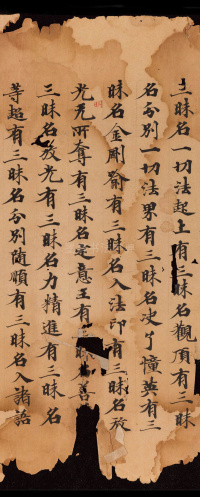 三昧名一切法起上有三昧名觀頂有三昧
名分別一切法界有三昧名決了憧英有三
昧名金剛喻有三昧名入法印有三昧名放
光无所奪有三昧名定意王有三昧善
三昧名放光有三昧名力精進有三昧名
等超有三昧名分別隨順有三昧名入諸語